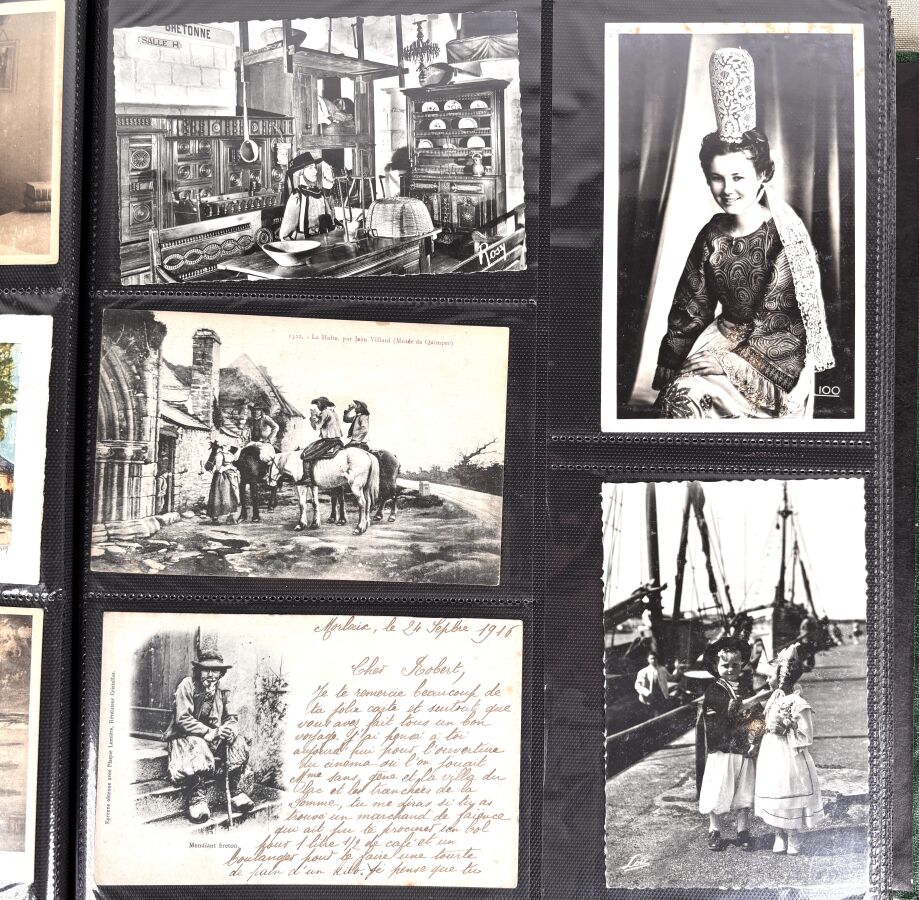 BRETONNE
SALLE H
Rosy
1322. - La Halte, par Jean Villard (Musée de Quimper)
100
Morlaix, le 24 Septbre 1916
Cher Robert,
Je te remercie beaucoup de
ta jolie carte et surtout que
vous avez fait tous un bon
voyage J'ai pensé à toi
aujourd'hui pour l'ouverture
du cinéma où l'on jouait
Mme sans gêne et la villa du
lac et les tranchées de la
Somme, tu me diras si tu as
trouvé un marchand de faïence
qui ait pu te procurer un bol
pour 1 litre 1/2 de café et un
boulanger pour te faire une tourte
de pain d'un kilo. Je pense que tu
Epreuve obtenue avec Plaque Lumière, Révélateur
Mendiant breton